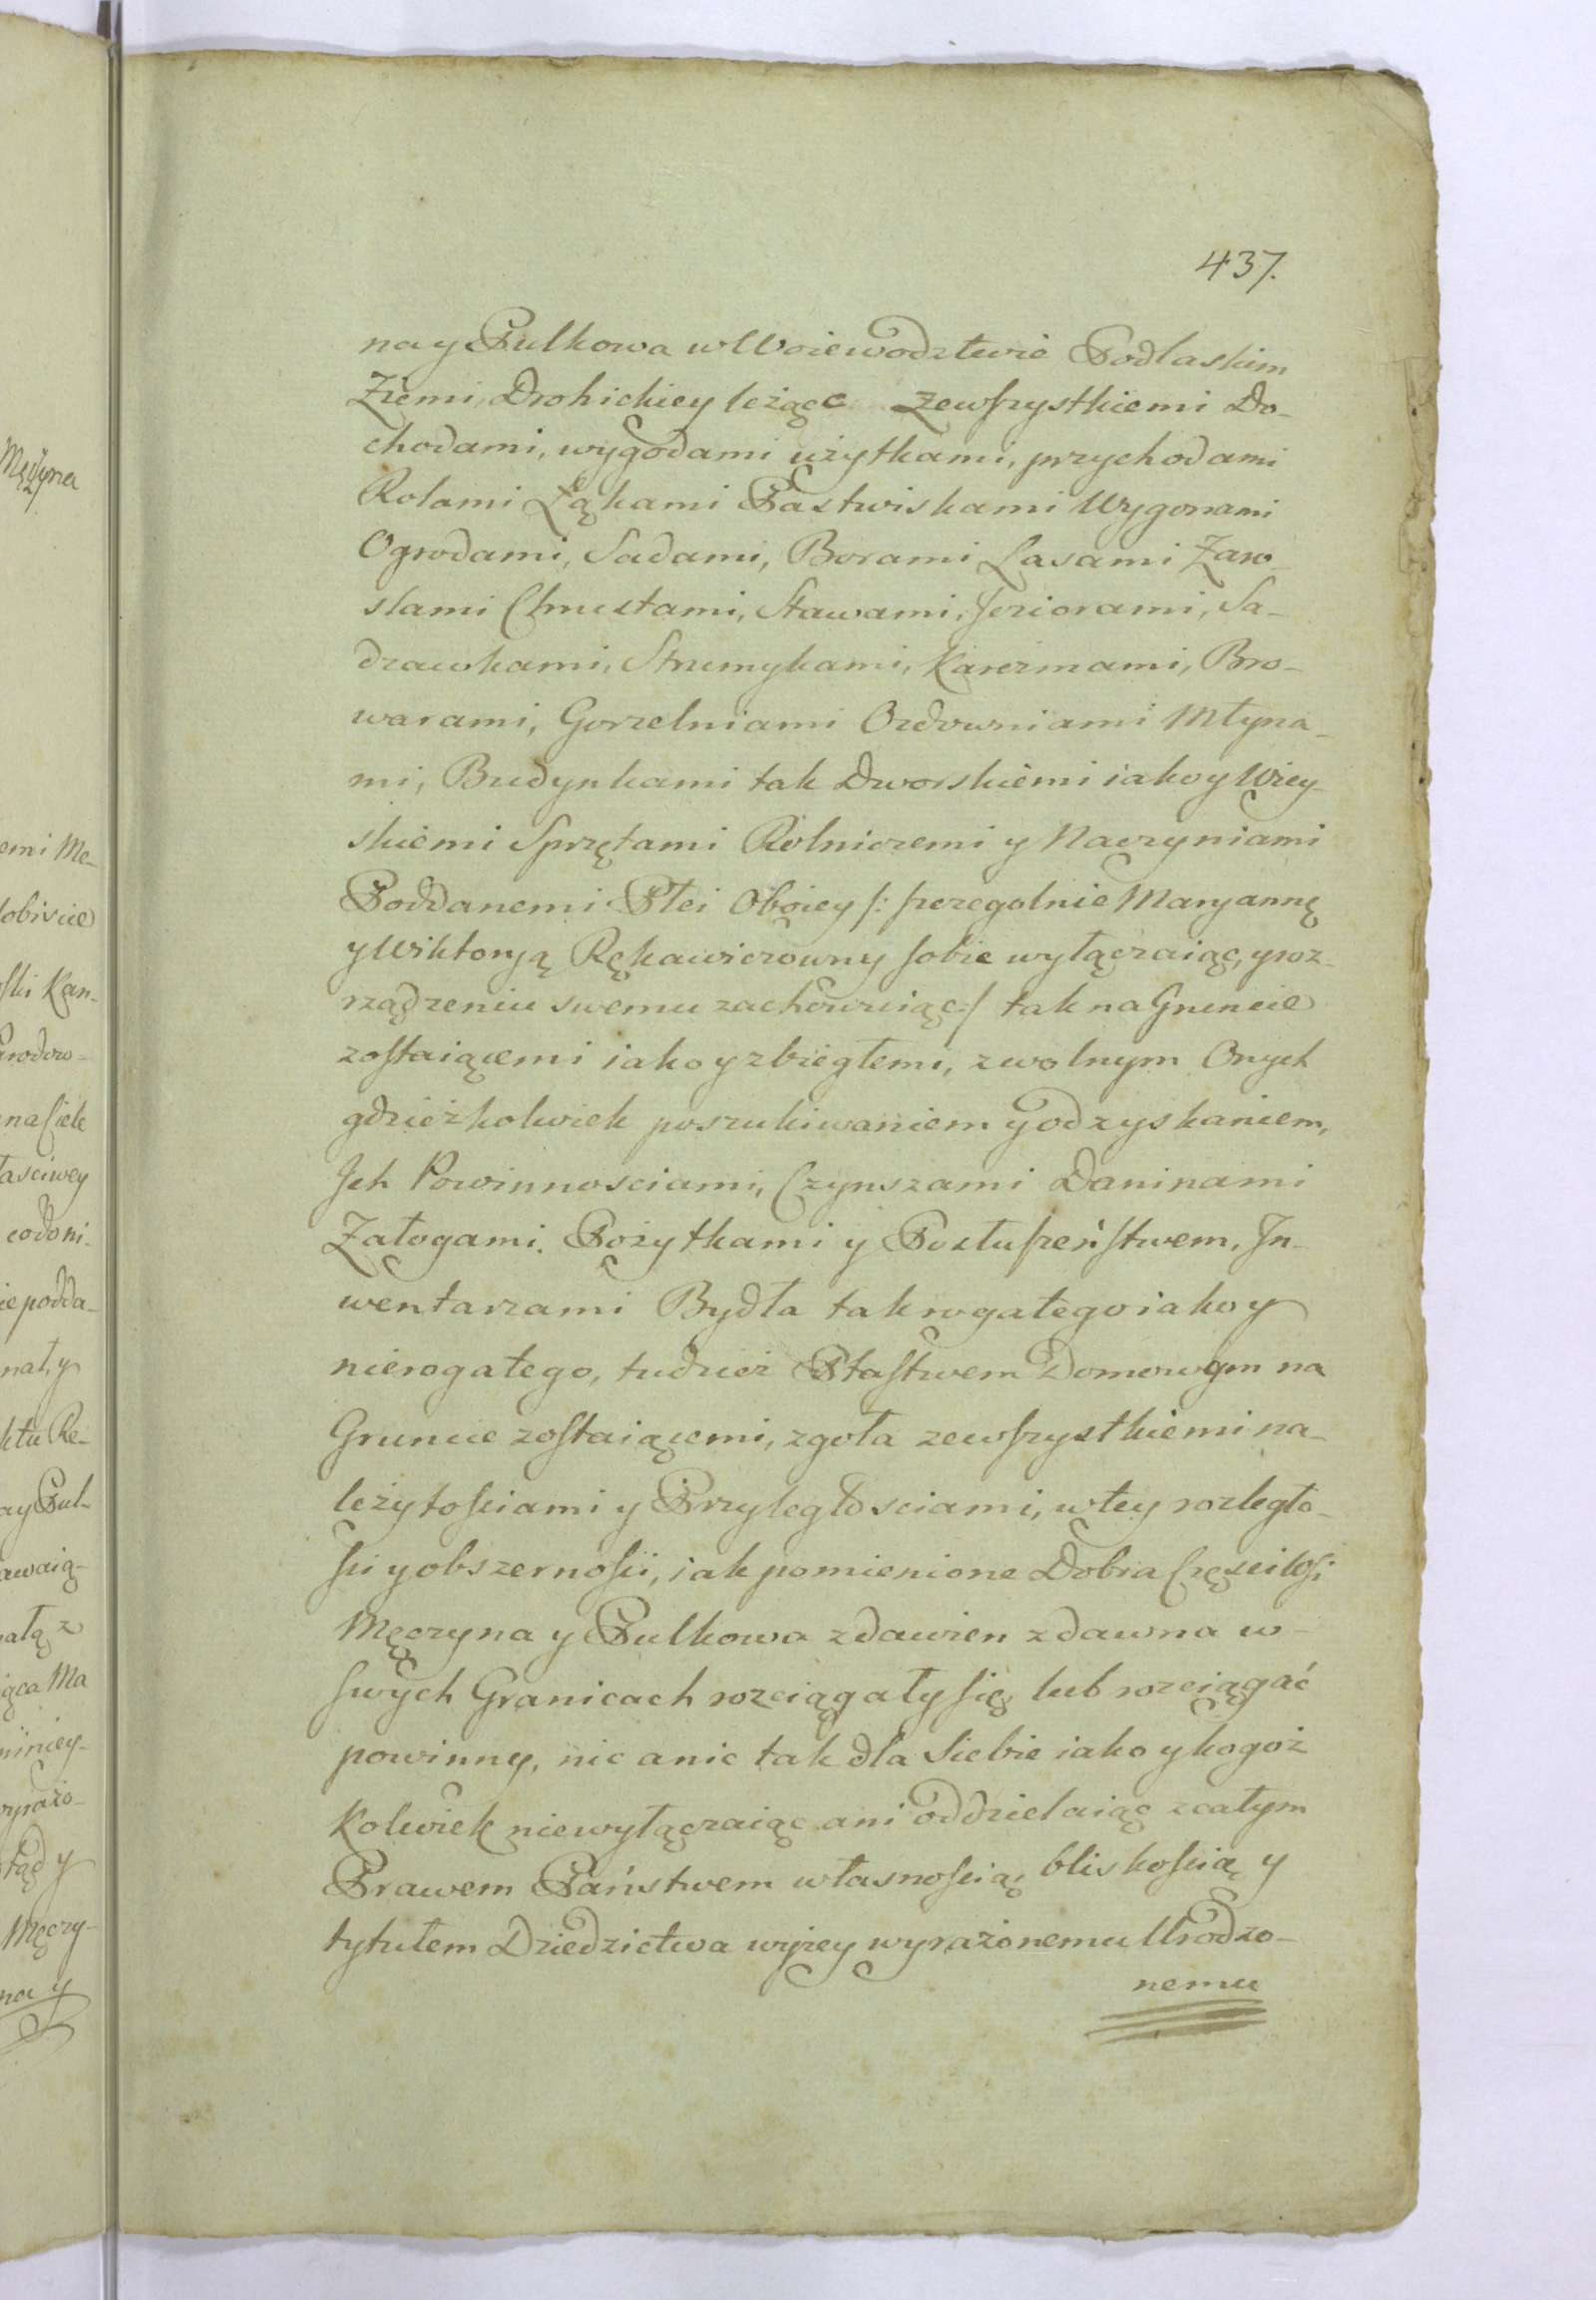 437.
na y Pulkowa w Woiewodztwie Podlaskim
Ziemi Drohickiey leżące zewszystkiemi Do-
chodami, wygodami użytkami, przychodami
Rolami Łąkami Pastwiskami Wygonami
Ogrodami, Sadami, Borami Lasami Zaro-
slami Chrustami, Stawami, Jeziorami, Sa-
dzawkami, Strumykami, Karczmami, Bro-
warami, Gorzelniami Ozdowniami Młyna-
mi, Budynkami tak Dworskiemi iako y Wiey-
skiemi Sprzętami Rolniczemi y Naczyniami
Poddanemi Płci Oboiey /: szczegolnie Maryannę
y Wiktoryą Rękawiczowny sobie wyłączaiąc, y roz-
rządzeniu swemu zachowuiąc :/ tak na Gruncie
zostaiącemi iako y zbiegłemi, z wolnym Onych
gdzieżkolwiek poszukiwaniem y odzyskaniem,
Jch Powinnosciami, Czynszami Daninami
Załogami, Pożytkami y Posłuszeństwem, Jn-
wentarzami Bydła tak rogatego iako y
nierogatego, tudzież Ptastwem Domowym na
Gruncie zostaiącemi, zgoła zewszystkiemi na-
leżytościami y Przyległosciami, w tey rozległo-
ści y obszerności, iak pomienione Dobra Części Wsi
Męczyna y Pulkowa zdawien zdawna w
swych Granicach rozciągały się, lub rozciągać
powinny, nic a nic tak dla Siebie iako y kogoż
kolwiek niewyłączaiąc ani oddzielaiąc z całym
Prawem Państwem własnością, bliskością y
tytułem Dziedzictwa wyżey wyrażonemu Urodzo-
nemu
Męczyna
emi Me-
ski Kan-
na Siele
co do ni-
ie podda-
nat, y
ktu Re-
ay Pul-
awaią-
iąca Ma
tąd y
Męczy-
na y